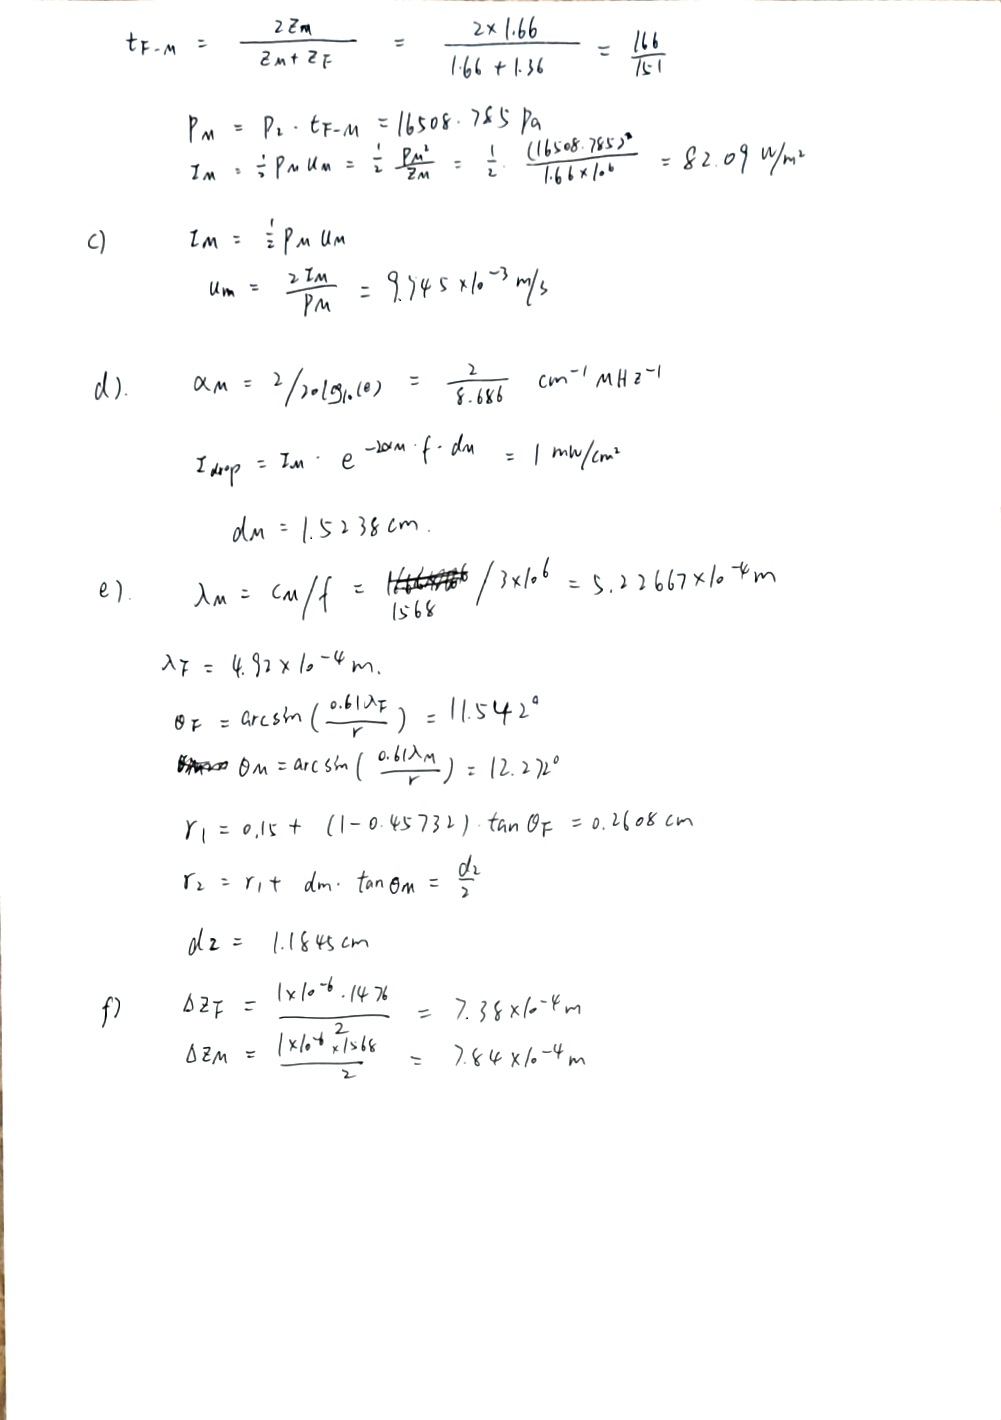 tF-M = 2Zm / (Zm + ZF) = 2×1.66 / (1.66 + 1.36) = 166/151
PM = P2 · tF-M = 16508.785 Pa
IM = 1/2 PM UM = 1/2 PM²/ZM = 1/2 · (16508.785)² / (1.66×10⁶) = 82.09 W/m²
c) IM = 1/2 PM UM
Um = 2IM / PM = 9.945 ×10⁻³ m/s
d). αM = 2/20log10(e) = 2/8.686 cm⁻¹ MHz⁻¹
Idrop = IM · e^(-2αM · f · dM) = 1 mW/cm²
dM = 1.5238 cm.
e). λM = CM/f = 1568 / 3×10⁶ = 5.22667×10⁻⁴ m
λF = 4.92×10⁻⁴ m.
θF = arcsin (0.61λF / r) = 11.542°
θM = arcsin (0.61λM / r) = 12.272°
r1 = 0.15 + (1-0.45732) · tan θF = 0.2608 cm
r2 = r1 + dm · tan θM = d2/2
d2 = 1.1845 cm
f) ΔZF = 1×10⁻⁶ · 1476 / 2 = 7.38×10⁻⁴ m
ΔZM = 1×10⁻⁶ ×1568 / 2 = 7.84×10⁻⁴ m